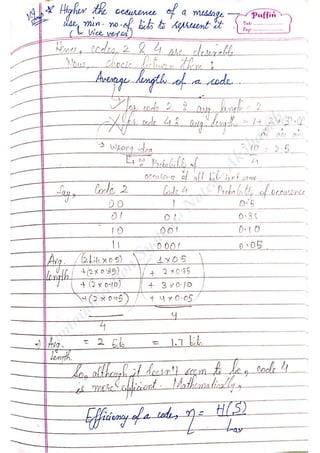 * Higher the occurence of a message
use, min. no. of bits to represent it
(& vice versa)
Puffin
Date
Page
Hence, codes 2 & 4 are desirable
Now, choose between them:
Average length of a code.
for code 2: avg. length = 2
for code 4: avg. length = 1+2+3+4
4
= 10 = 2.5
4
→ wrong idea
Probability of
occurence of all bits isn't same
Say, Code 2 Code 4 Probability of occurence
00 1 0.5
01 01 0.35
10 001 0.10
11 0001 0.05
Avg. (2 × 0.5) 1 × 0.5
length + (2 × 0.35) + 2 × 0.35
+ (2 × 0.10) + 3 × 0.10
+ (2 × 0.05) + 4 × 0.05
4 4
⇒ Avg. = 2 bit = 1.7 bit
length
So, although it doesn't seem to be, code 4
is more efficient. Mathematically,
Efficiency of a code, η = H(S)
Lav